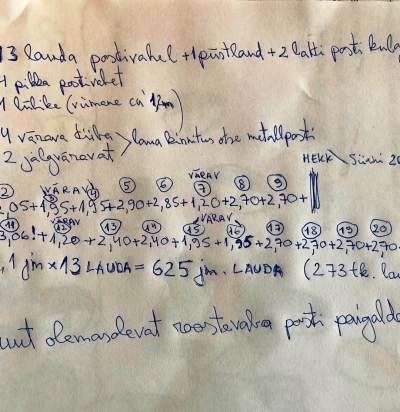 13 lauda postivahel + 1 püstlaud + 2 latti posti külg
4 pikka postivahet
1 lühike (viimene ca 1,2m)
4 värava tiiba > laua kinnitus otse metallposti
2 jalgväravat
HEKK \ Siiani 20
VÄRAV VÄRAV
2 3 4 5 6 7 8 9
,05+1,95+1,95+2,90+2,85+1,20+2,70+2,70+
11 VÄRAV 12 13 14 VÄRAV 15 16 17 18 19 20
3,06!+1,20+2,40+2,40+1,95+1,95+2,70+2,70+2,70+2,70
,1 jm x 13 LAUDA = 625 jm. LAUDA (273 tk. lau
olemasolevat roostevaba posti paigalda